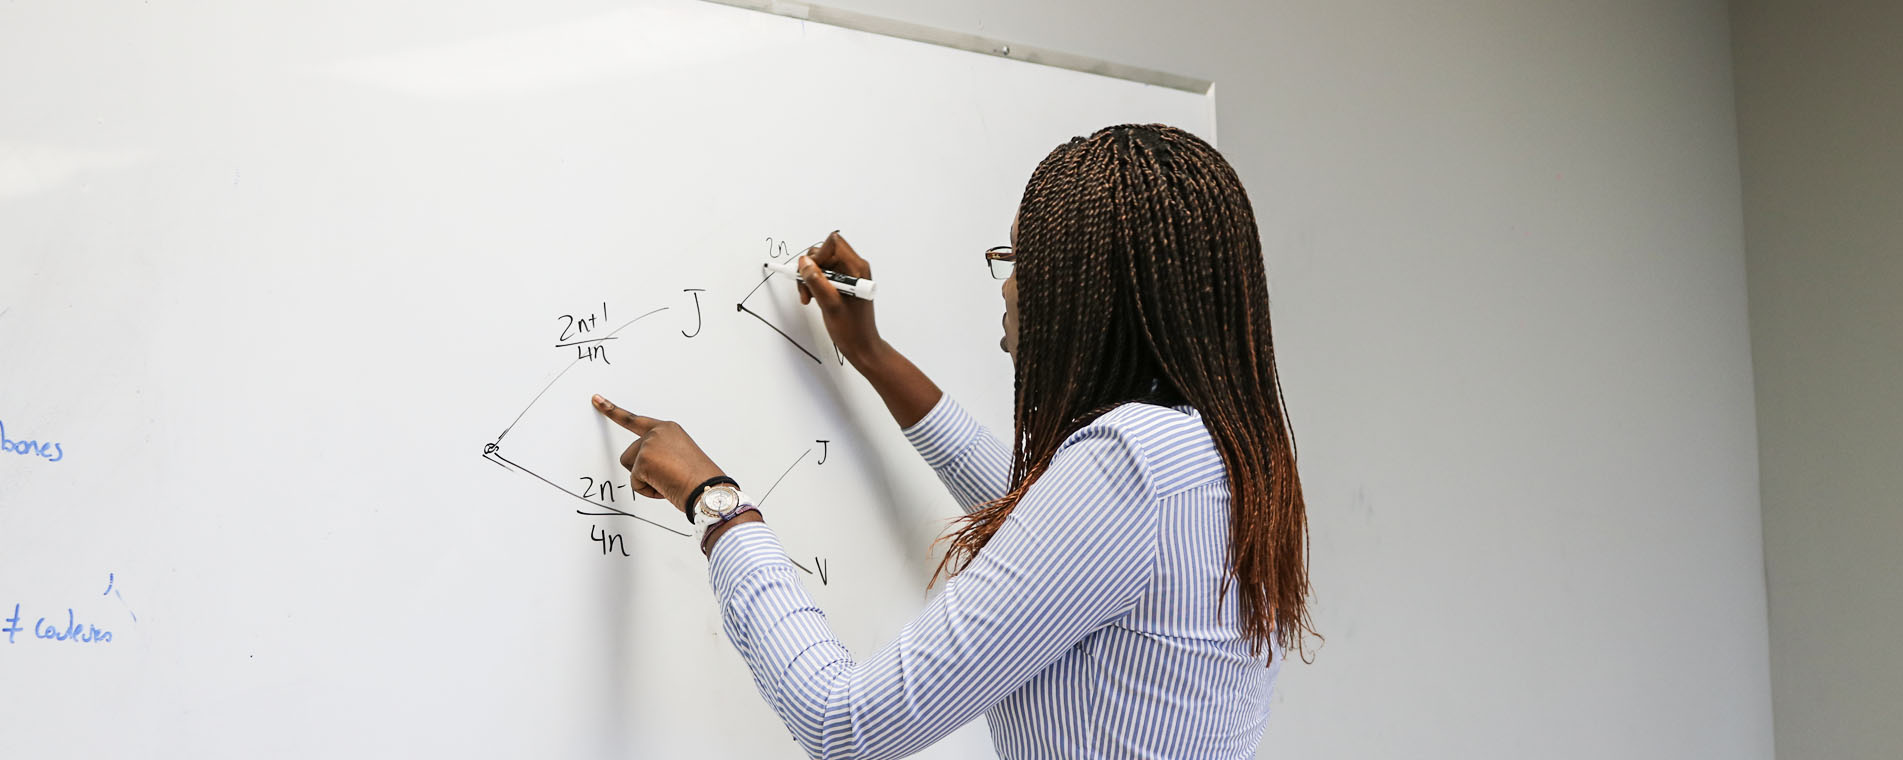 bones
≠ couleurs
2n+1
4n
J
2n
V
2n-1
4n
J
V